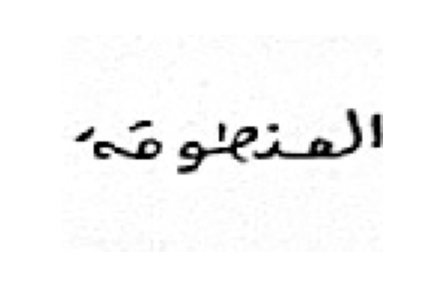 المنطوقة